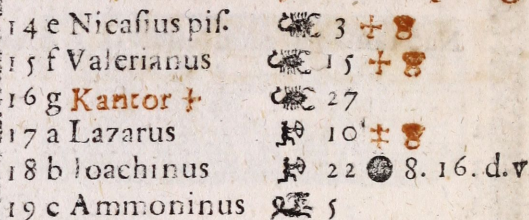 14 e Nicaſius piſ. ♏ 3 ✢
15 f Valerianus ♏ 15 ✢
16 g Kantor ✢ ♏ 27
17 a Lazarus ♐ 10 ✢
18 b Ioachinus ♐ 22 ● 8. 16. d. v
19 c Ammoninus 5